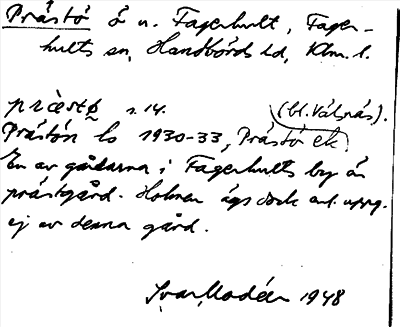 Prästö ö u. Fagerhult, Fager-
hults sn, Handbörds hd, Klm. l.
præstø s. 14. (bl. Välsnäs).
Prästön ls 1930-33, Prästö ek.
En av gårdarna i Fagerhults by är
prästgård. Holmen ägs dock enl. uppg.
ej av denna gård.
Ivar Modéer 1948